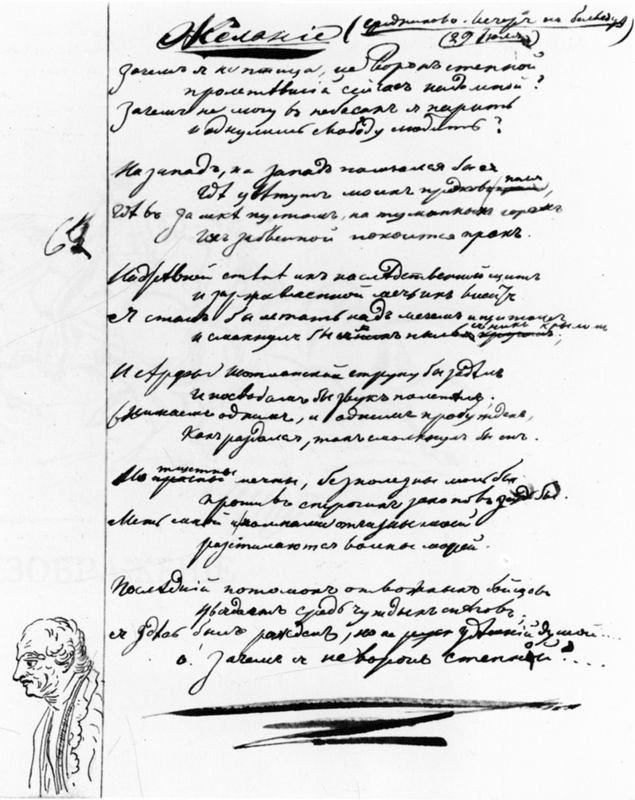 Желаніе (Средниково. Вечеръ на бельведерѣ)
(29 Іюля)
Зачѣмъ я не птица, не воронъ степной
Пролетѣвшій сейчасъ надо мной?
Зачѣмъ не могу въ небесахъ я парить
И одну лишь свободу любить?
На западъ, на западъ помчался бы я,
Гдѣ цвѣтутъ моихъ предковъ поля,
Гдѣ въ замкѣ пустомъ, на туманныхъ горахъ
Ихъ забвенной покоится прахъ.
62
На древной стѣнѣ ихъ наслѣдственной щитъ
И заржавленной мечъ ихъ виситъ.
Я сталъ бы летать надъ мечемъ и щитомъ
И смахнулъ бы я пыль съ нихъ крыломъ;
И Арфы Шотландской струну бы задѣлъ
И по сводамъ бы звукъ полетѣлъ;
Внимаемъ однимъ, и однимъ пробужденъ,
Какъ раздался, такъ смолкнулъ бы онъ.
Но тщетны мечты, безполезны мольбы
Противъ строгихъ законовъ судьбы.
Межъ мной и холмами отчизны моей
Разстилаются волны морей.
Послѣдній потомокъ отважныхъ бойцовъ
Увядаетъ средь чуждыхъ снѣговъ;
Я здѣсь былъ рожденъ, но не здѣшній душой....
О! зачѣмъ я не воронъ степной?....
ЗОБРАЖЕНІЕ